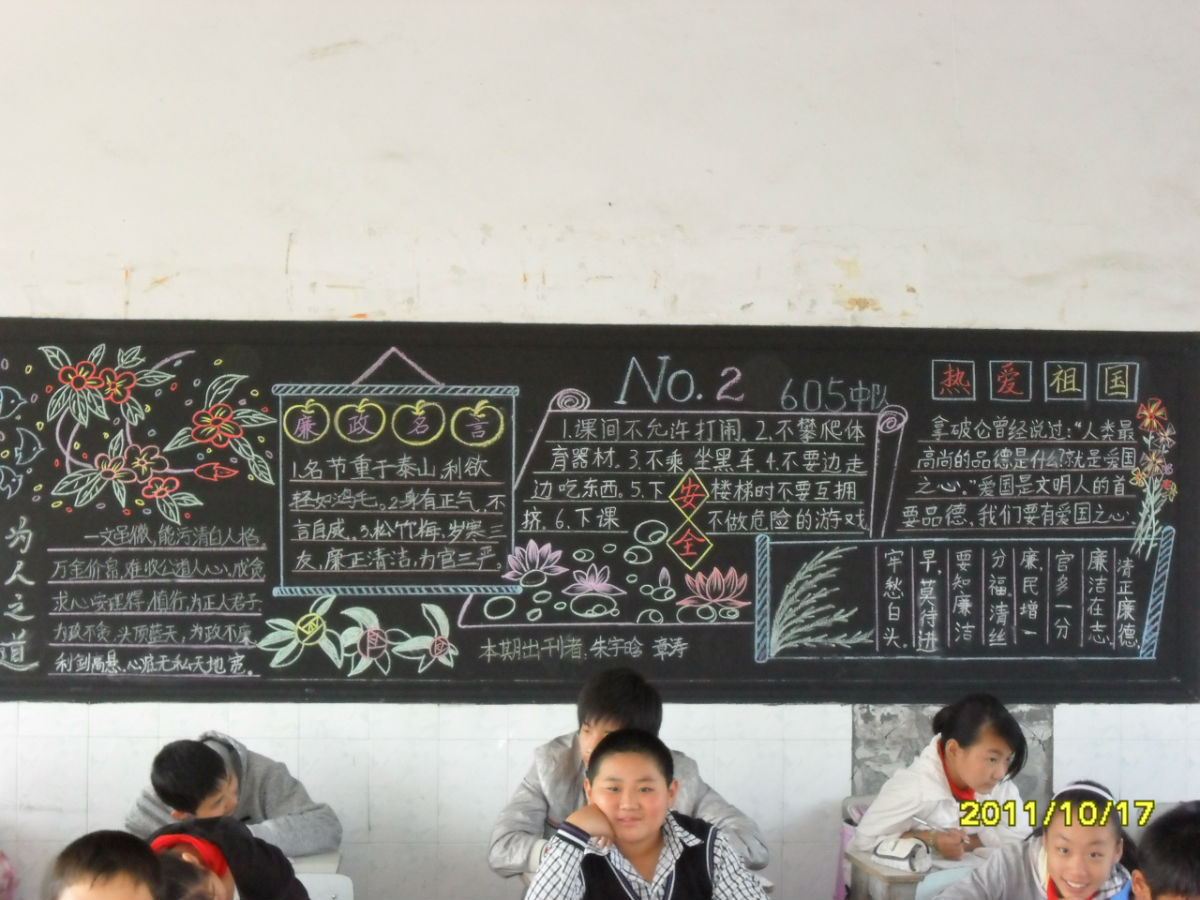 为人之道
一文虽微,能污清白人格,
万金价高,难收公道人心,戒贪
求心安理得,慎行,为正人君子
为政不贪,头顶蓝天,为政不廉
利剑高悬,心底无私天地宽。
廉政名言
1.名节重于泰山,利欲
轻如鸿毛。2.身有正气,不
言自威。3.松竹梅,岁寒三
友,廉正清洁,为官三严。
No.2 605中队
1.课间不允许打闹。2.不攀爬体
育器材。3.不乘坐黑车。4.不要边走
边吃东西。5.下楼梯时不要互拥
挤。6.下课不做危险的游戏
安全
本期出刊者:朱宇晗 章涛
热爱祖国
拿破仑曾经说过:“人类最
高尚的品德是什么?就是爱国
之心。”爱国是文明人的首
要品德,我们要有爱国之心。
清正廉德,
廉洁在志,
官多一分
廉,民增一
分福,清丝
要知廉洁
早,莫待进
牢愁白头。
2011/10/17